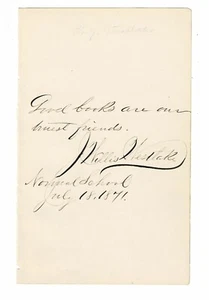 Good books are our
truest friends.
Willis Westlake
Normal School
July 18. 1871.